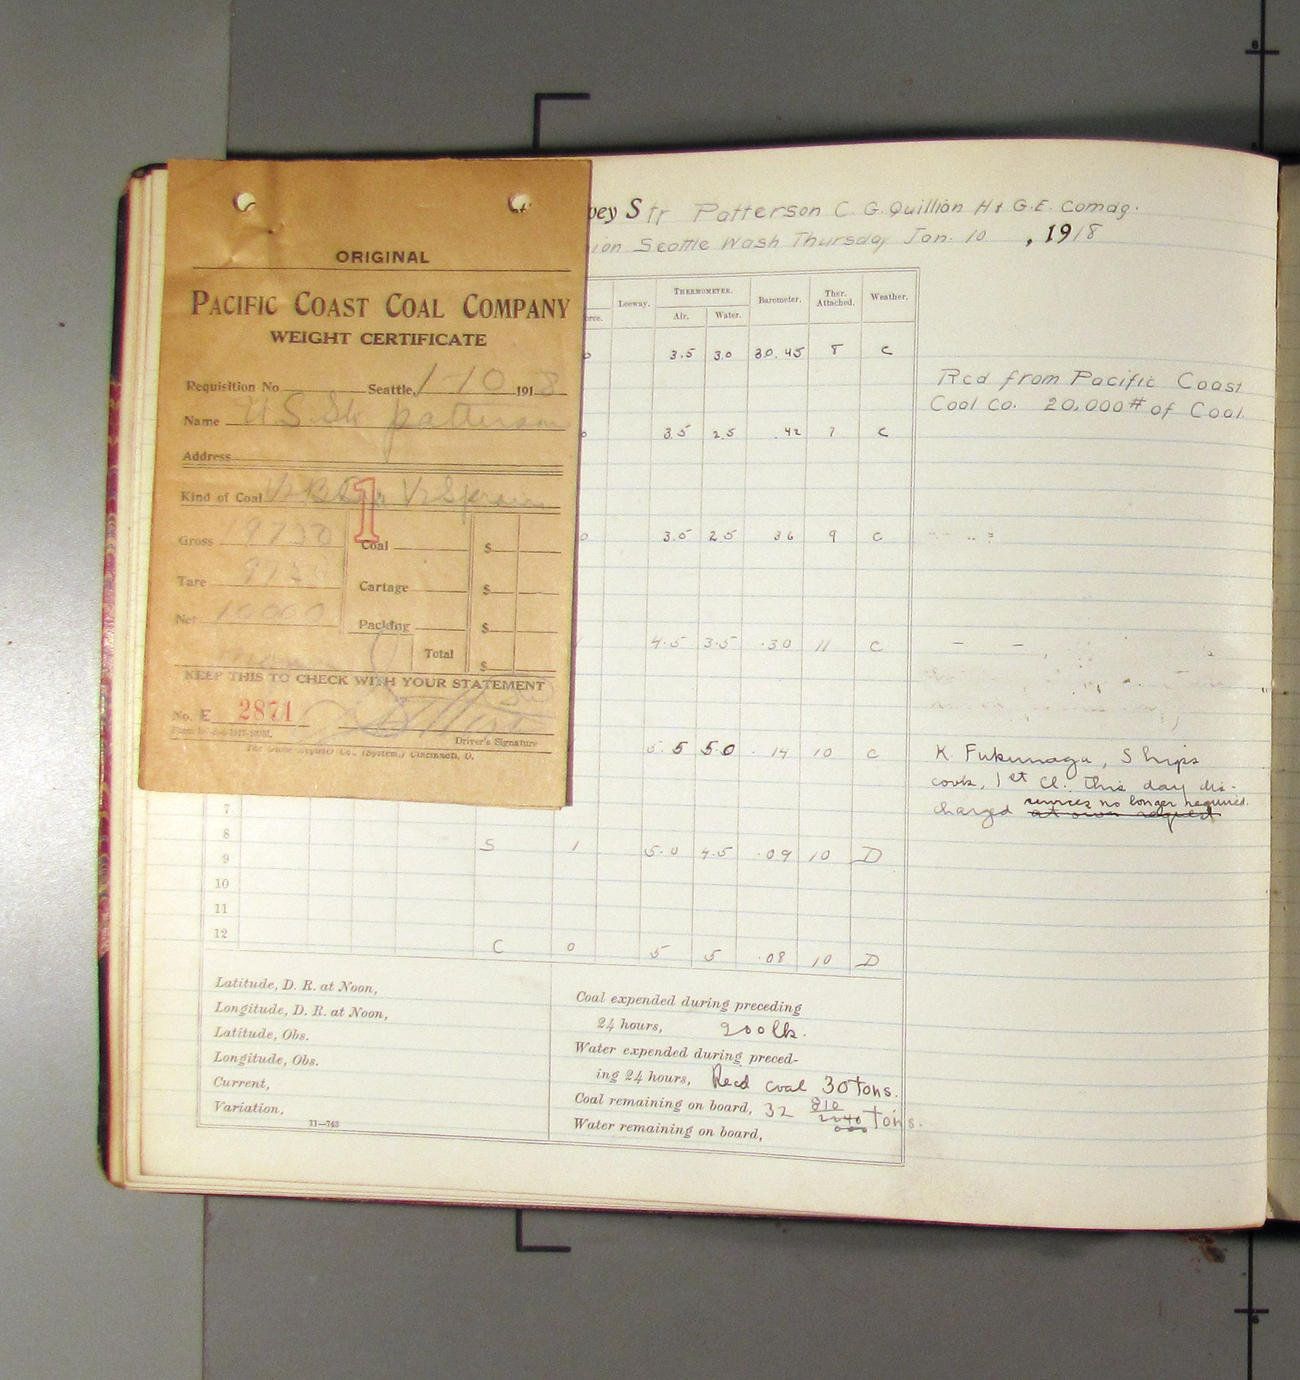 ORIGINAL
PACIFIC COAST COAL COMPANY
WEIGHT CERTIFICATE
Requisition No Seattle, 1-10 1918
Name U.S. Str Patterson
Address
Kind of Coal
1
Gross Coal $
Tare Cartage $
Net 10000 Packing $
Total $
KEEP THIS TO CHECK WITH YOUR STATEMENT
No. E 2871
Driver's Signature
vey Str Patterson C. G. Quillian H & G.E. Comdg.
Seattle Wash Thursday Jan. 10, 1918
Leeway. THERMOMETER. Barometer. Ther. Attached. Weather.
Air. Water.
3.5 30 30.45 8 C
Rcd from Pacific Coast
Coal Co. 20,000# of Coal
3.5 2.5 .42 7 C
3.5 25 36 9 C
4.5 3.5 .30 11 C
5.5 50 .14 10 C
K. Fukunaga, Ships
cook, 1st Cl. this day dis-
services no longer required.
charged at own request
7
8
S 1 5.0 4.5 .09 10 D
9
10
11
12
C 0 5 5 .08 10 D
Latitude, D. R. at Noon,
Longitude, D. R. at Noon,
Latitude, Obs.
Longitude, Obs.
Current,
Variation,
11—743
Coal expended during preceding
24 hours, 900 lb.
Water expended during preced-
ing 24 hours, Recd coal 30 tons.
Coal remaining on board, 32 810/2240 tons.
Water remaining on board,